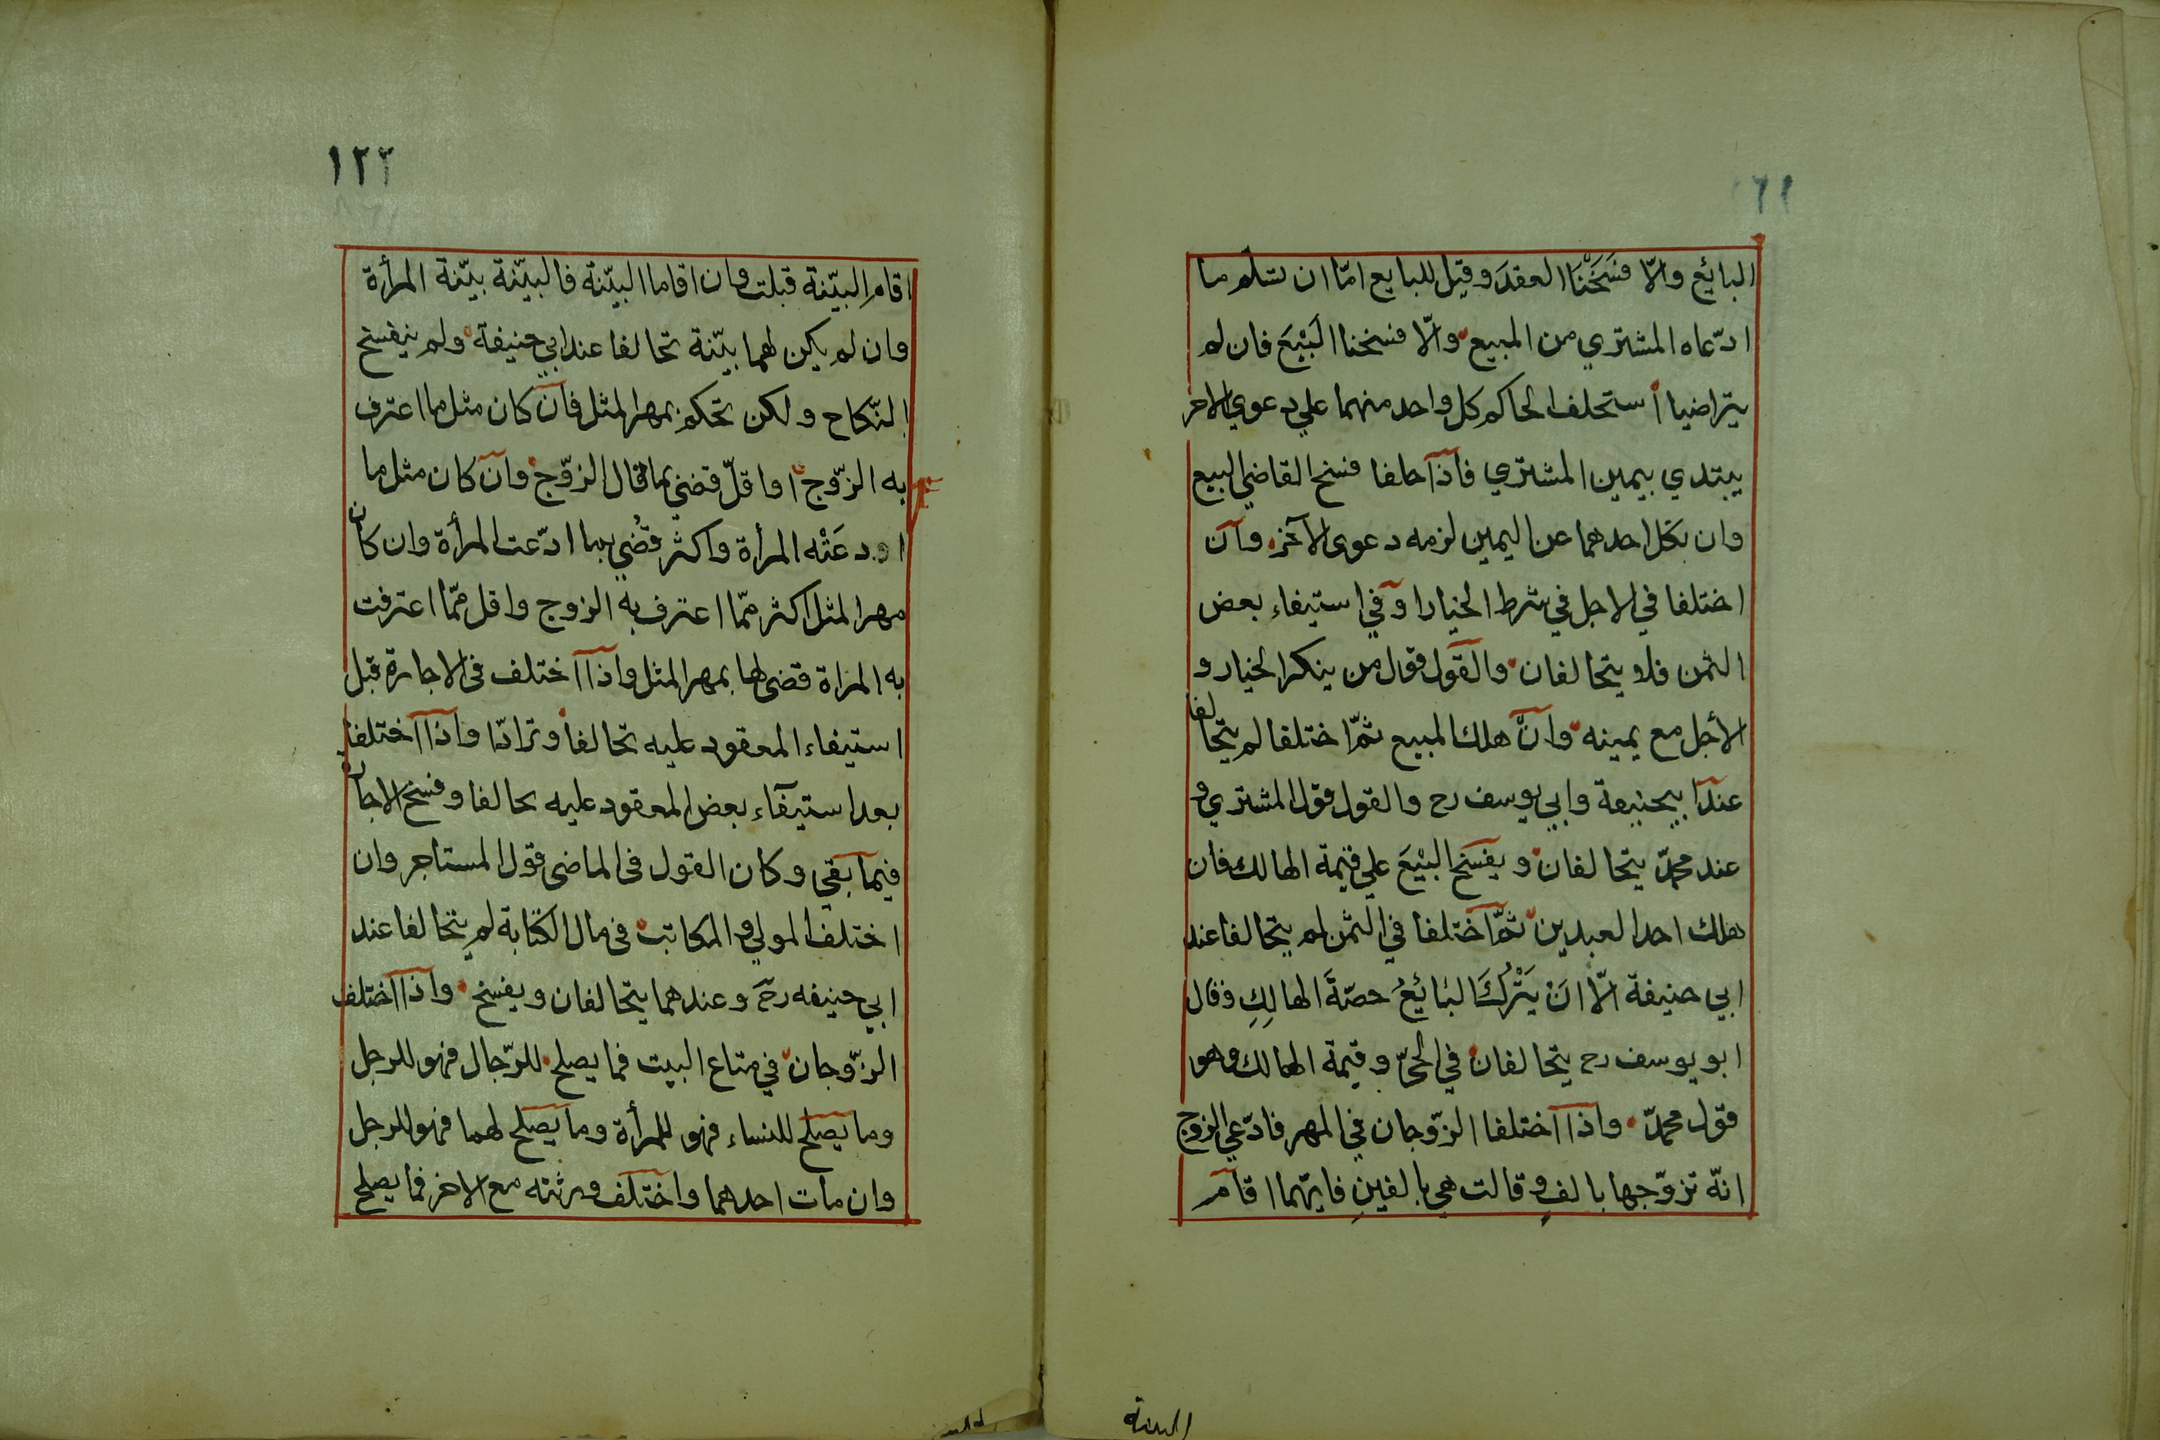 البائع والّا فسَخْنَا العقدَ وقيل للبايع امّا ان تسلّم ما
ادّعاه المشتري من المبيع والّا فسخنا البَيْعَ فان لم
يتراضيا أستحلف الحاكم كل واحد منهما علي دعوي الاخر
يبتدي بيمين المشتري فاذا حلفا فسخ القاضي البيع
وان نكل احدهما عن اليمين لزمه دعوى الآخر وان
اختلفا في الاجل في شرط الخيار او في استيفاء بعض
الثمن فلا يتحالفان والقول قول من ينكر الخيار و
الأجل مع يمينه وان هلك المبيع ثمّ اختلفا لم يتحالفا
عند ابيحنيفة وابي يوسف رح والقول قول المشتري و
عند محمدّ يتحالفان ويفسخ البيْعَ علي قيمة الهالك فان
هلك احد العبدين ثمّ اختلفا في الثمن لم يتحالفا عند
ابي حنيفة الّا انَ يَتْرُكَ البَائِعُ حصّةَ الهالِكِ وقال
ابو يوسف رح يتحالفان في الحيّ وقيمة الهالك وهو
قول محمدّ واذا اختلفا الزوّجان في المهر فادّعي الزوج
انّه تزوّجها بالفٍ وقالت هي بالفينِ فايّهما اقام
البينة
١٢٢
اقام البيّنة قبلت وان اقاما البيّنة فالبيّنة بيّنة المرأة
وان لم يكن لهما بيّنة تحالفا عند ابي حنيفة ولم ينفسخ
النّكاح ولكن تحكم بمهر المثل فان كان مثل ما اعترف
به الزوّج او اقلّ قضي بما قال الزوّج وان كان مثل ما
ادعَتْه المرأة واكثر قُضي بها ادّعت المرأة وان كان
مهر المثل اكثر ممّا اعترف به الزوج واقل ممّا اعترفت
به المراة قضى لها بمهر المثل واذا اختلف في الاجارة قبل
استيفاء المعقود عليه تحالفا وترادّا واذا اختلفا
بعد استيفاء بعض المعقود عليه تحالفا وفسخ الاجارة
فيما بقي وكان القول في الماضي قول المستاجر وان
اختلف المولي والمكاتب في مال الكتابة لم يتحالفا عند
ابي حنيفه رح وعندهما يتحالفان ويفسخ واذا اختلف
الزوّجان في متاع البيت فما يصلح للرّجال فهو للرجل
وما يصلح للنساء فهو للمرأة وما يصلح لهما فهو للرجل
وان مات احدهما واختلف ورثته مع الاخر فما يصلح